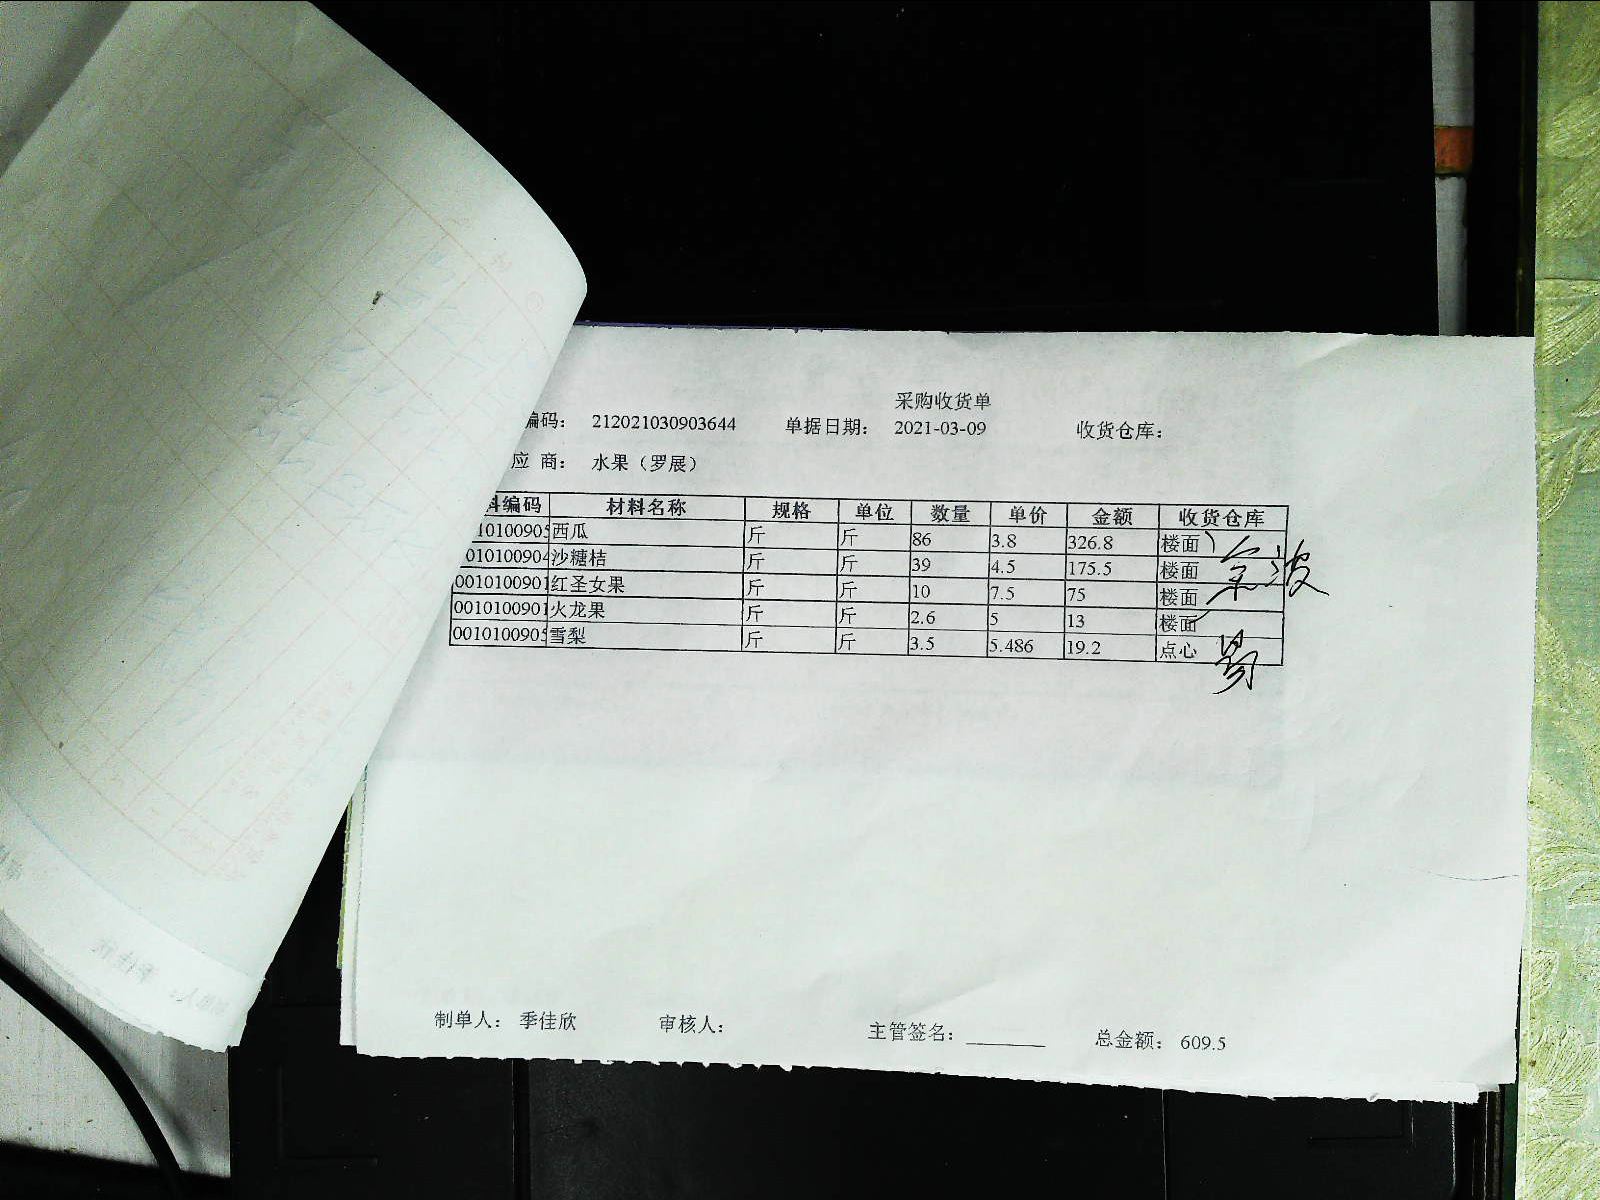 采购收货单
编码: 212021030903644 单据日期: 2021-03-09 收货仓库:
应 商: 水果（罗展）
料编码 材料名称 规格 单位 数量 单价 金额 收货仓库
10100905 西瓜 斤 斤 86 3.8 326.8 楼面
010100904 沙糖桔 斤 斤 39 4.5 175.5 楼面
0010100901 红圣女果 斤 斤 10 7.5 75 楼面
0010100901 火龙果 斤 斤 2.6 5 13 楼面
0010100905 雪梨 斤 斤 3.5 5.486 19.2 点心
制单人: 季佳欣 审核人: 主管签名: 总金额: 609.5